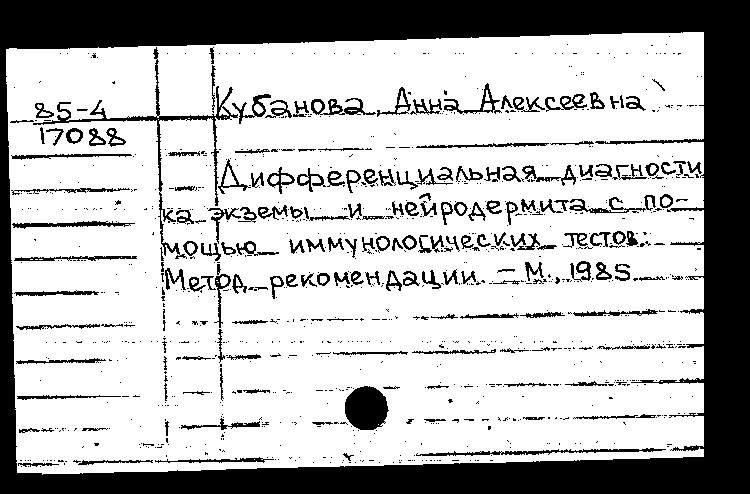 85-4
17088
Кубанова, Анна Алексеевна
Дифференциальная диагности
ка экземы и нейродермита с по-
мощью иммунологических тестов:
Метод. рекомендации. - М., 1985